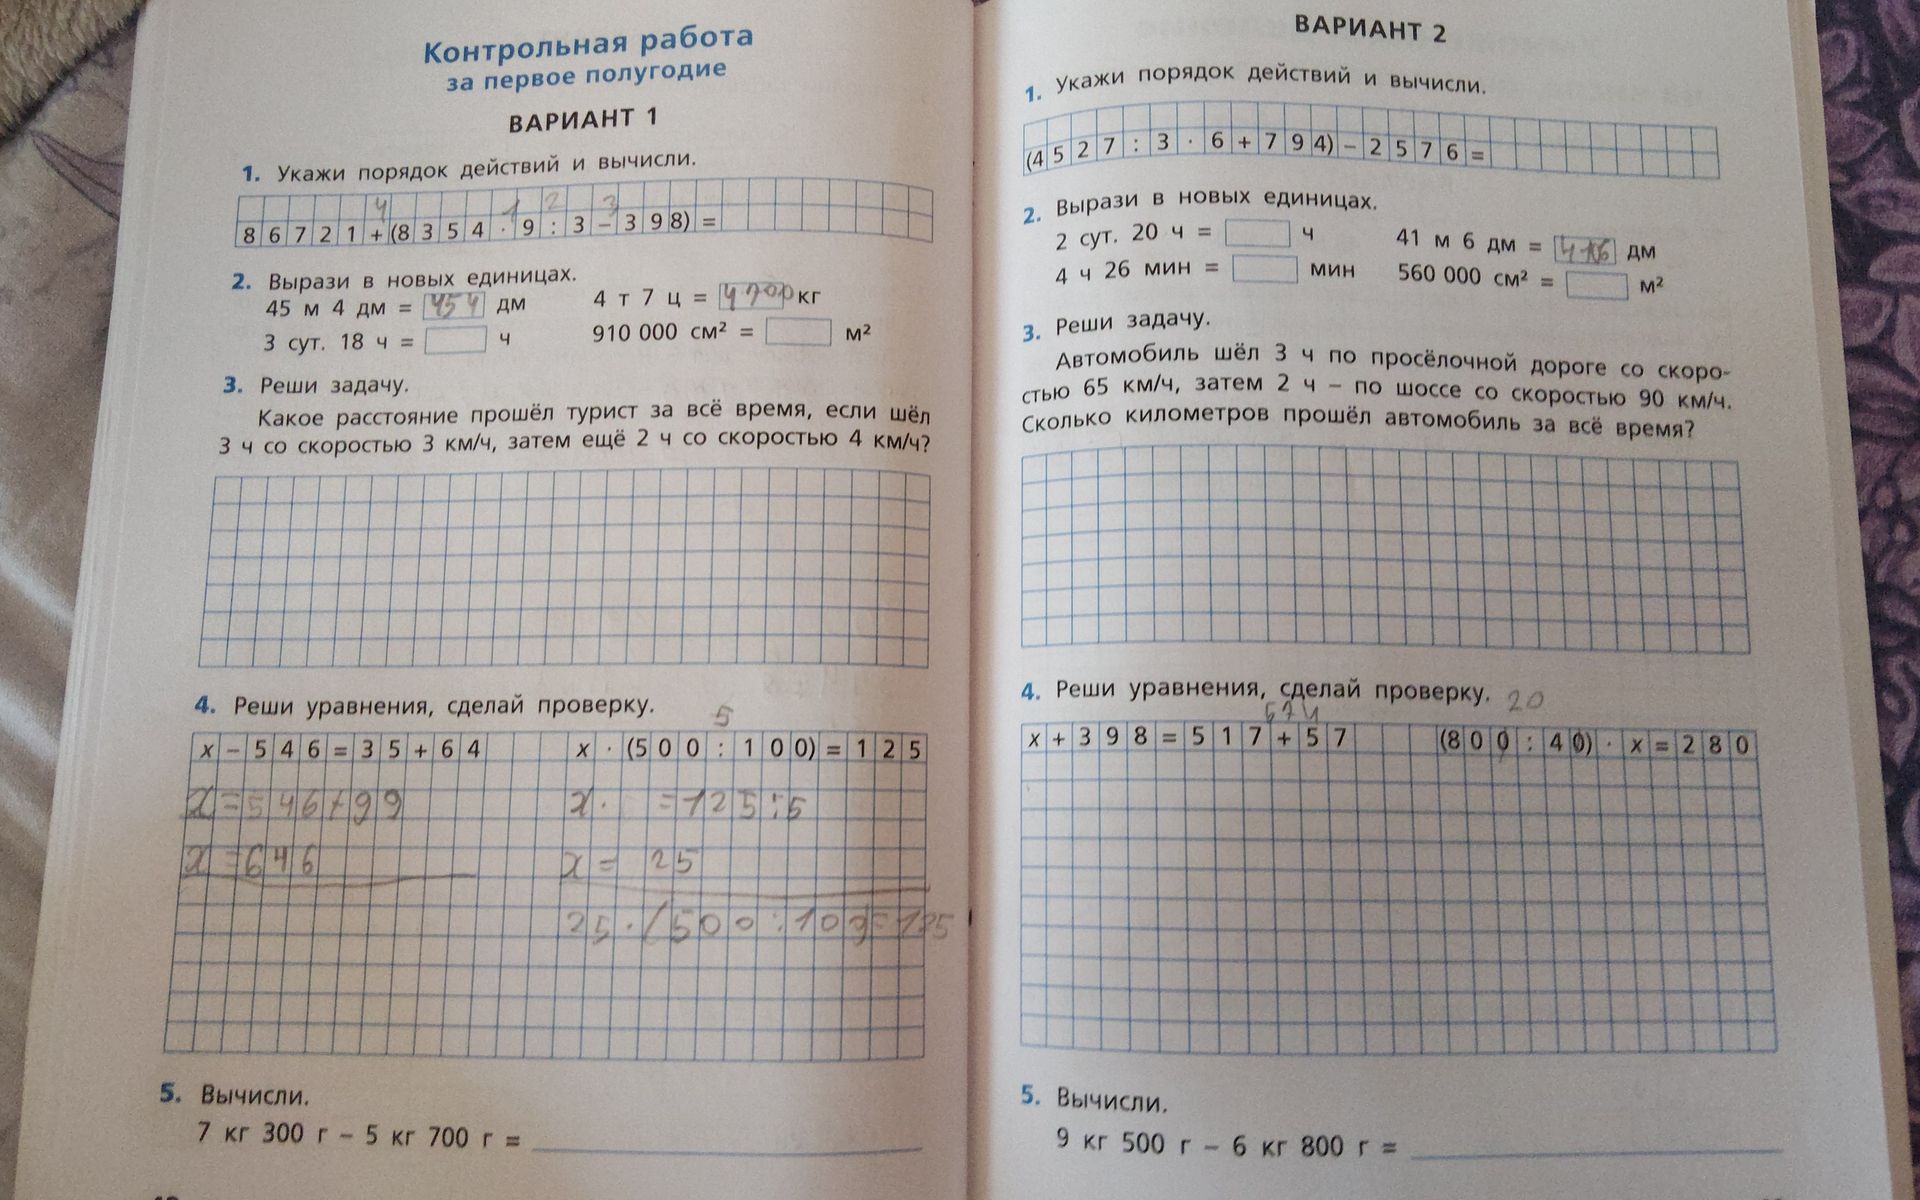 Контрольная работа
за первое полугодие
ВАРИАНТ 1
1. Укажи порядок действий и вычисли.
4 1 2 3
86721+(8354·9:3-398)=
2. Вырази в новых единицах.
45 м 4 дм = 454 дм
4 т 7 ц = 4700 кг
3 сут. 18 ч = ч
910 000 см² = м²
3. Реши задачу.
Какое расстояние прошёл турист за всё время, если шёл
3 ч со скоростью 3 км/ч, затем ещё 2 ч со скоростью 4 км/ч?
4. Реши уравнения, сделай проверку.
5
x-546=35+64
x·(500:100)=125
x=546+99
x· =125:5
x=646
x= 25
25·(500:100=125
5. Вычисли.
7 кг 300 г – 5 кг 700 г =
ВАРИАНТ 2
1. Укажи порядок действий и вычисли.
(4527:3·6+794)-2576=
2. Вырази в новых единицах.
2 сут. 20 ч = ч
41 м 6 дм = 416 дм
4 ч 26 мин = мин
560 000 см² = м²
3. Реши задачу.
Автомобиль шёл 3 ч по просёлочной дороге со скоро-
стью 65 км/ч, затем 2 ч – по шоссе со скоростью 90 км/ч.
Сколько километров прошёл автомобиль за всё время?
4. Реши уравнения, сделай проверку.
574 20
x+398=517+57
(800:40)·x=280
5. Вычисли.
9 кг 500 г – 6 кг 800 г =